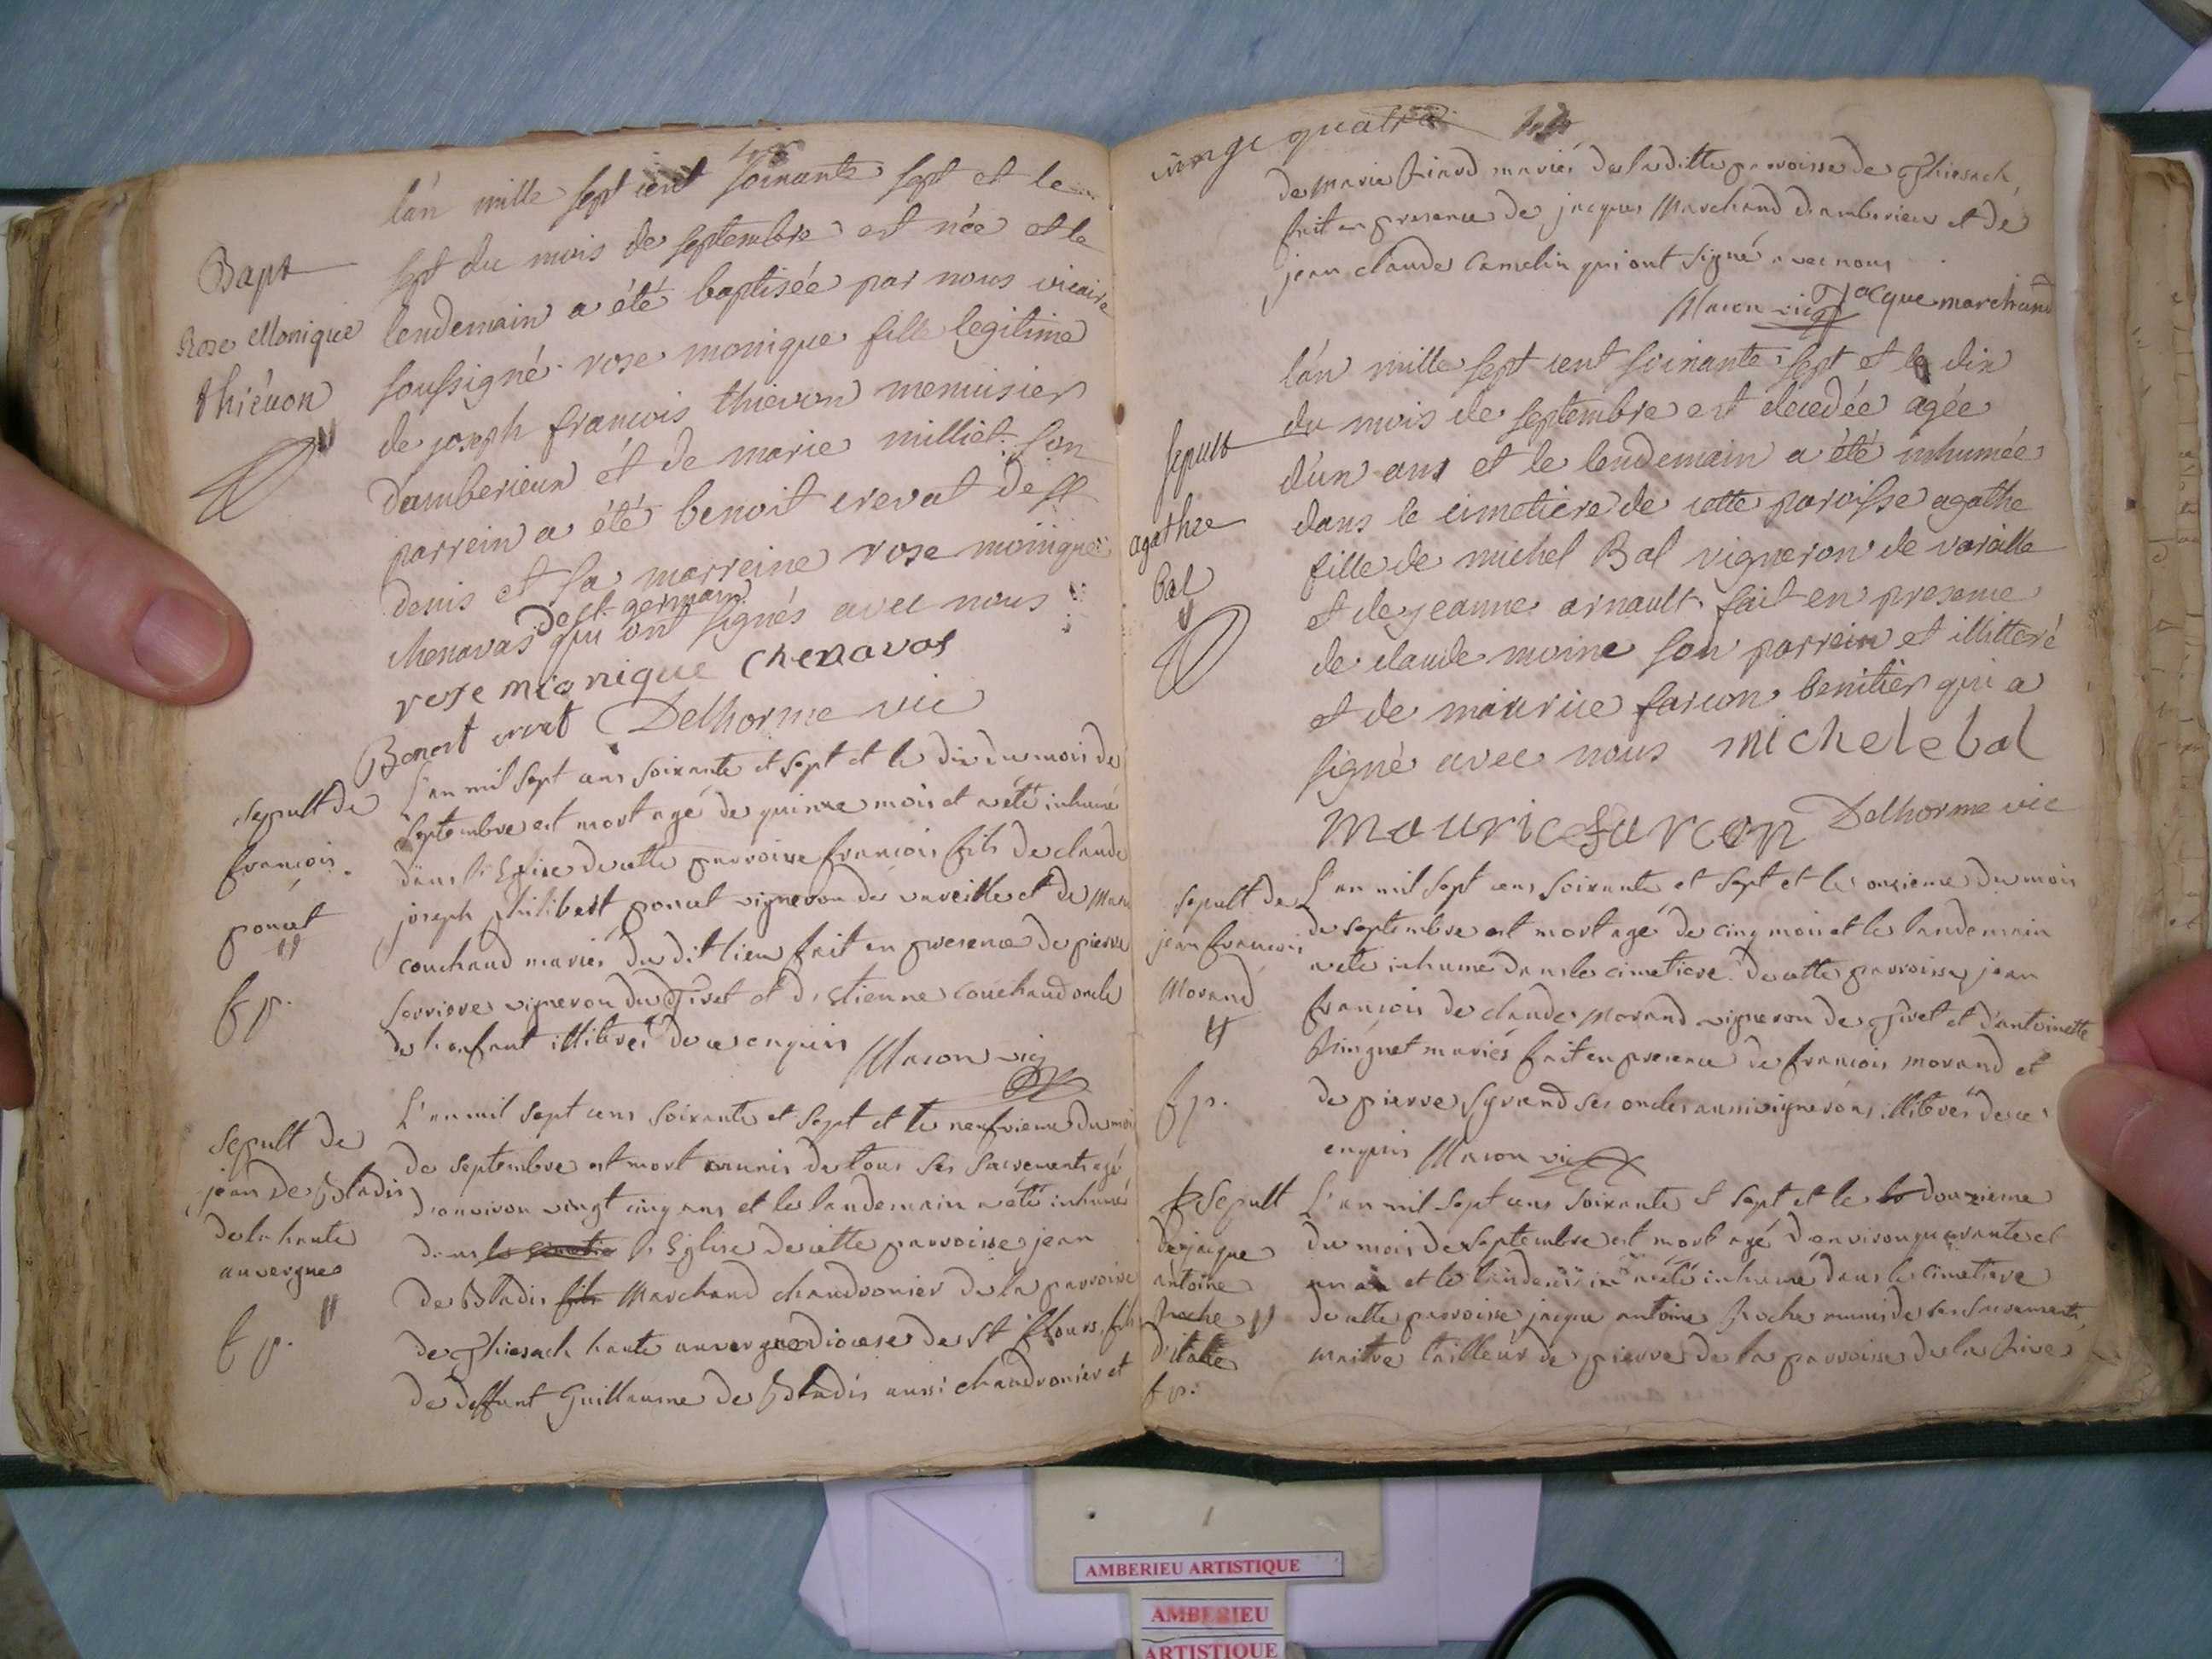 l'an mille sept cent soixante sept et le
Bapt
sept du mois de septembre est née et le
lendemain a été baptisée par nous vicaire
Rose Monique
soussigné rose monique fille legitime
thiévon
de joseph francois thievon menuisier
d'amberieux et de marie milliet son
parrein a été benoit crevat de st
denis et sa marreine rose monique
de st germain
chenavas qui ont signés avec nous
rose mionique chenavas
Benoit crevat Delhorme vic
sepult de
françois
poncet
f p.
L'an mil sept cens soixante et sept et le dix du mois de
septembre est mort agé de quinze mois et a été inhumé
dans l'Eglise de cette parroisse francois fils de claude
joseph philibert poncet vigneron de vareille et de Marie
couchaud mariés du dit lieu fait en presence de pierre
vigneron du Tiret et d'estienne couchaud oncle
de l'enfant illiterés de ce enquis Macon vic
sepult de
jean De Bladis
de la haute
auvergne
f p.
L'an mil sept cens soixante et sept et le neufvieme du mois
de septembre est mort munis de tous ses sacrements agé
d'environ vingt cinq ans et le landemain a été inhumé
dans le cimetie l'Eglise de cette parroisse jean
De Bladis fils Marchand chaudronier de la parroisse
de Thiesach haute auvergne diocese de St flours, fils
de deffunt Guillaume de Bladis aussi chaudronier et
vingt quatre
de Marie Liard mariés de la ditte parroisse de Thiesach,
fait en presence de jacques Marchand d'amberieux et de
jean claude Camelin qui ont signé avec nous
Macon vic Jacque marchand
l'an mille sept cent soixante sept et le dix
du mois de septembre est decedée agée
sepult
agathe
bal
d'un ans et le lendemain a été inhumée
dans le cimetiere de cette paroisse agathe
fille de michel Bal vigneron de vareille
et de jeanne arnault fait en presence
de claude moine son parrein et illitteré
et de maurice farcon benitier qui a
signé avec nous michel ebal
mouric farcon Delhorme vic
sepult de
jean francois
Morand
f p.
L'an mil sept cens soixante et sept et le onzieme du mois
de septembre est mort agé de cinq mois et le landemain
a été inhumé dans le cimetiere de cette parroisse jean
francois de claude Morand vigneron de Tiret et d'antoinette
mariés fait en presence de francois morand et
de pierre ses oncles aussi vignerons illiterés de ce
enquis Macon vic
sepult
de jacque
antoine
Roche
d'italie
f p.
L'an mil sept cens soixante et sept et le douzieme
du mois de septembre est mort agé d'environ quarante et
un an et le landemain a été inhumé dans le cimetiere
de cette parroisse jacque antoine Roche munis de ses sacrements,
maitre tailleur de pierre de la parroisse de la Rive
AMBERIEU ARTISTIQUE
AMBERIEU
ARTISTIQUE